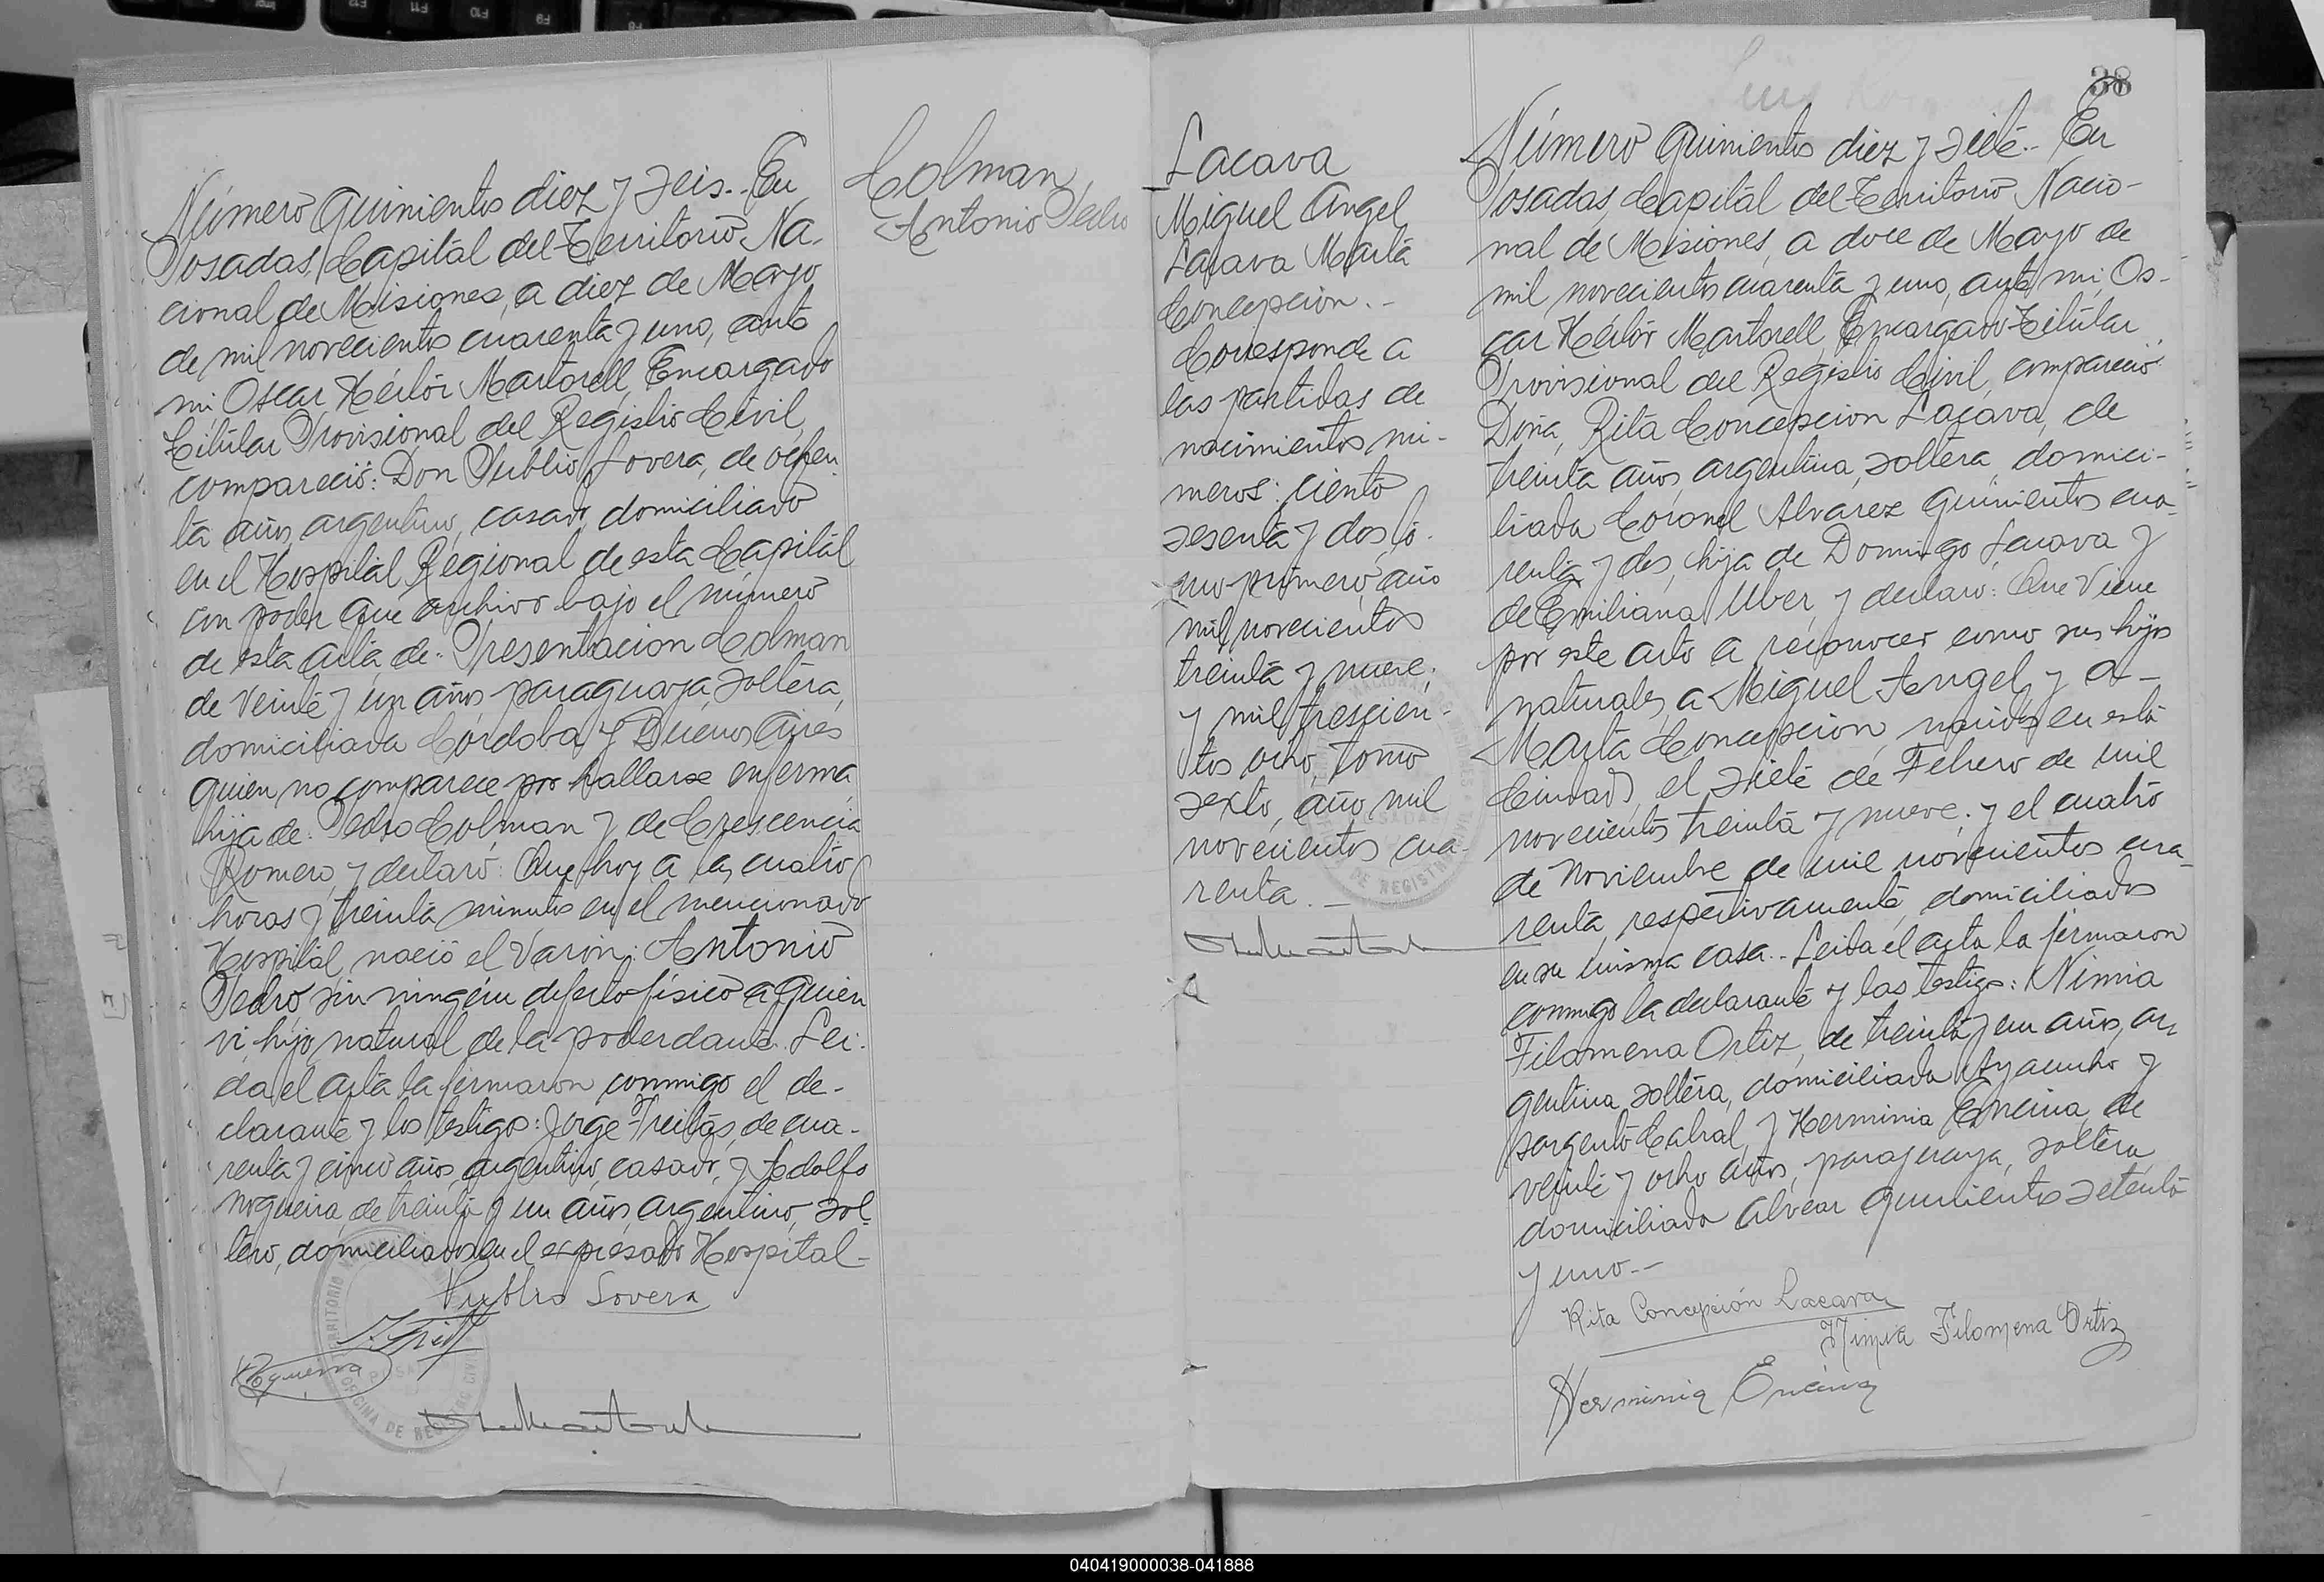 Número quinientos diez y seis.. En
Posadas, Capital del Territorio Na-
cional de Misiones, a diez de Mayo
de mil novecientos cuarenta y uno, ante
mi Oscar Héctor Martorell, Encargado
Titular Provisional del Registro Civil,
compareció: Don Publio Lovera, de ochen
ta años, argentino, casado, domiciliado
en el Hospital Regional de esta Capital
con poder que archivo bajo el número
de esta acta de: Presentacion Colman
de veinte y un años, paraguaya, soltera,
domiciliada Córdoba y Buenos Aires
quien no comparece por hallarse enferma,
hija de: Pedro Colman y de Crescencia
Romero, y declaró: Que hoy a las cuatro
horas y treinta minutos en el mencionado
Hospital, nació el Varón: Antonio
Pedro, sin ningún defecto físico a quien
vi, hijo natural de la poderdante. Lei-
da el acta la firmaron conmigo el de-
clarante y los testigos: Jorge Freitas, de cua-
renta y cinco años, argentino, casado, y Adolfo
Nogueira, de treinta y un años, argentino, sol-
tero, domiciliados en el expresado Hospital-
Publio Lovera
Colman
Antonio Pedro
TERRITORIO
OFICINA DE REGISTRO CIVIL
38
Lacava
Miguel Angel
Lacava Marta
Concepcion.-
Corresponde a
las partidas de
nacimientos nú-
meros: ciento
sesenta y dos, to-
mo primero, año
mil novecientos
treinta y nueve;
y mil trescien-
tos ocho, tomo
sexto, año mil
novecientos cua-
renta.-
Número quinientos diez y siete.. En
Posadas, Capital del Territorio Nacio-
nal de Misiones, a doce de Mayo de
mil novecientos cuarenta y uno, ante mi, Os-
car Héctor Martorell, Encargado Titular
Provisional del Registro Civil, compareció:
Doña, Rita Concepcion Lacava, de
treinta años, argentina, soltera, domici-
liada Coronel Alvarez quinientos cua-
renta y dos, hija de Domingo Lacava y
de Emiliana Uber, y declaró: Que Viene
por este acto a reconocer como sus hijos
naturales, a Miguel Angel y a-
Marta Concepcion, nacidos en esta
Ciudad, el siete de Febrero de mil
novecientos treinta y nueve; y el cuatro
de Noviembre de mil novecientos cua-
renta, respectivamente, domiciliados
en su misma casa.. Leida el acta la firmaron
conmigo la declarante y las testigos: Nimia
Filomena Ortiz, de treinta y un años, ar-
gentina, soltera, domiciliada Ayacucho y
Sargento Cabral, y Herminia Encina, de
veinte y ocho años, paraguaya, soltera,
domiciliada Alvear quinientos setenta
y uno.--
Rita Concepción Lacava
Nimia Filomena Ortiz
Herminia Encina
040419000038-041888